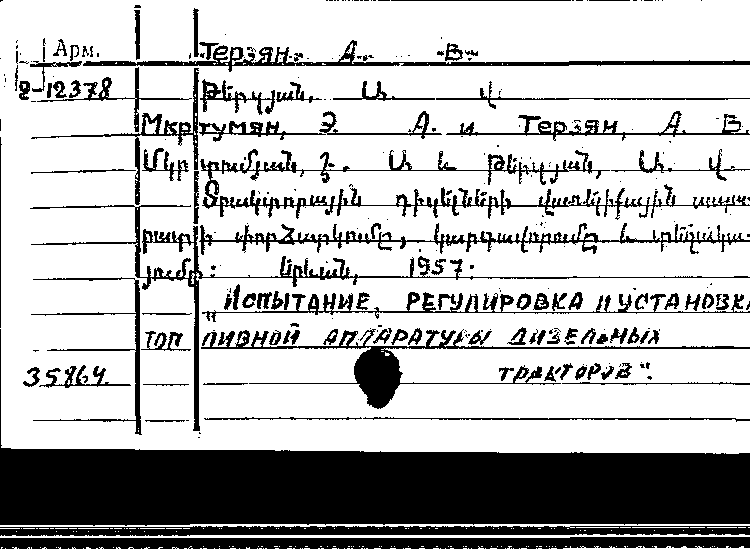 Арм. Терзян. А. В.
2-12378 Թերզյան, Ա. Վ
Мкртумян, Э. А. и Терзян, А. В.
Մկրտումյան, Է. Ա և Թերզյան, Ա. Վ.
Տրակտորային դիզելների վառելիքային ապա-
րատի փորձարկումը, կարգավորումը և տեղակա-
յումը: Երևան, 1957:
„Испытание, регулировка и установка
топливной аппаратуры дизельных
35864. тракторов".